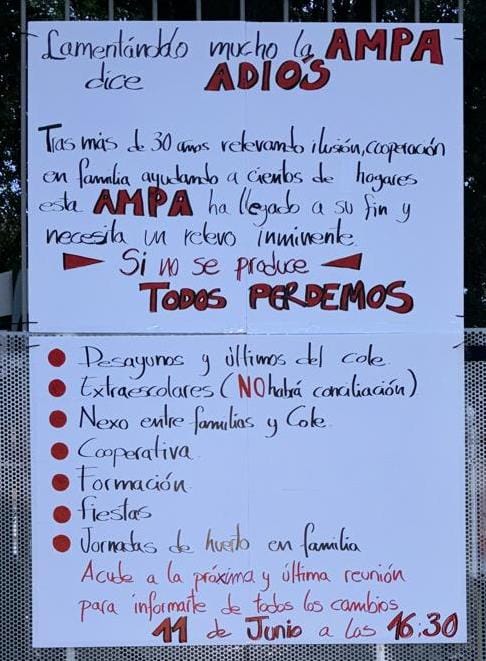 Lamentándolo mucho la AMPA
dice ADIÓS
Tras más de 30 años relevando ilusión, cooperación
en familia ayudando a cientos de hogares
esta AMPA ha llegado a su fin y
necesita un relevo inminente.
Si no se produce
TODOS PERDEMOS
Desayunos y últimos del cole.
Extraescolares (NO habrá conciliación)
Nexo entre familias y Cole.
Cooperativa
Formación
Fiestas
Jornadas de huerto en familia
Acude a la próxima y última reunión
para informarte de todos los cambios
11 de Junio a las 16:30